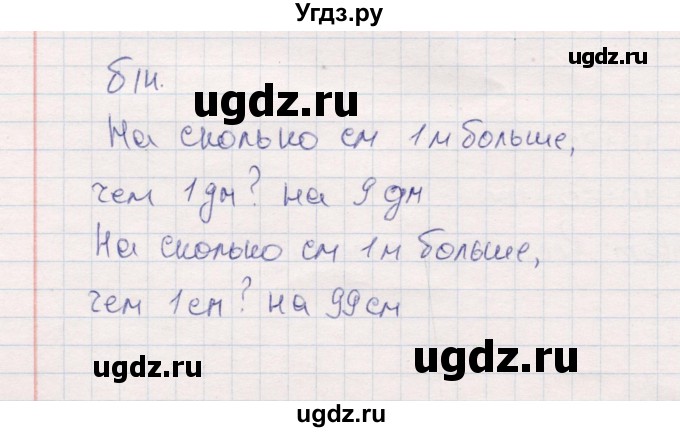 Угдз.ру
ugdz.ru
614.
ugdz.ru
На сколько см 1 м больше,
чем 1 дм? на 9 дм
На сколько см 1 м больше,
чем 1 см? на 99 см
ugdz.ru
ugdz.ru
ugdz.ru